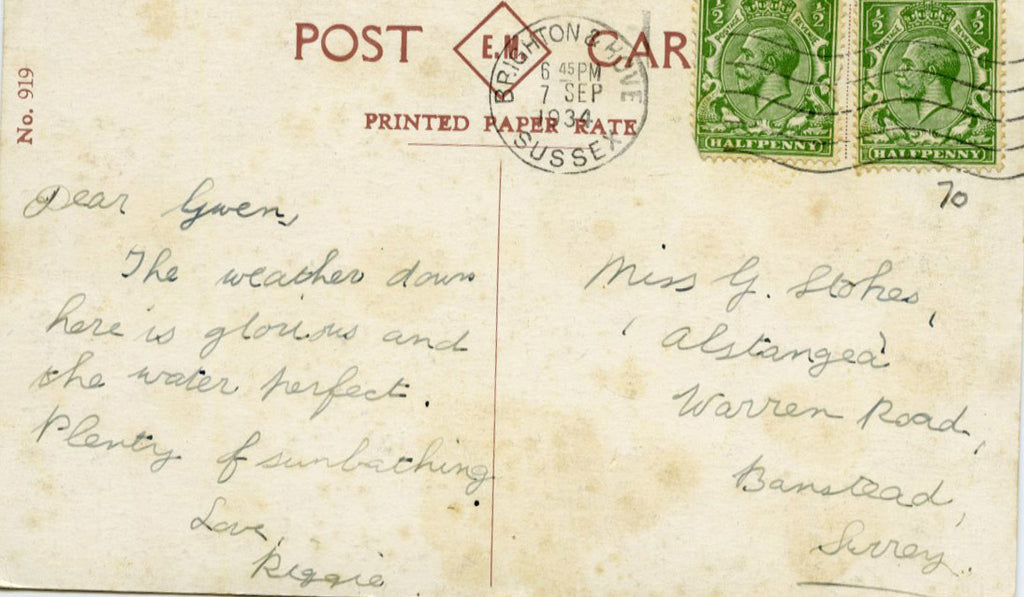 POST CAR
E.M.
BRIGHTON & HOVE
6 45 PM
7 SEP
1934
SUSSEX
PRINTED PAPER RATE
No. 919
½ ½
POSTAGE REVENUE
HALFPENNY
½ ½
POSTAGE REVENUE
HALFPENNY
70
Dear Gwen,
The weather down
here is glorious and
the water perfect.
Plenty of sunbathing.
Love,
Reggie
Miss G. Stokes,
'Alstangea'
Warren Road,
Banstead,
Surrey.